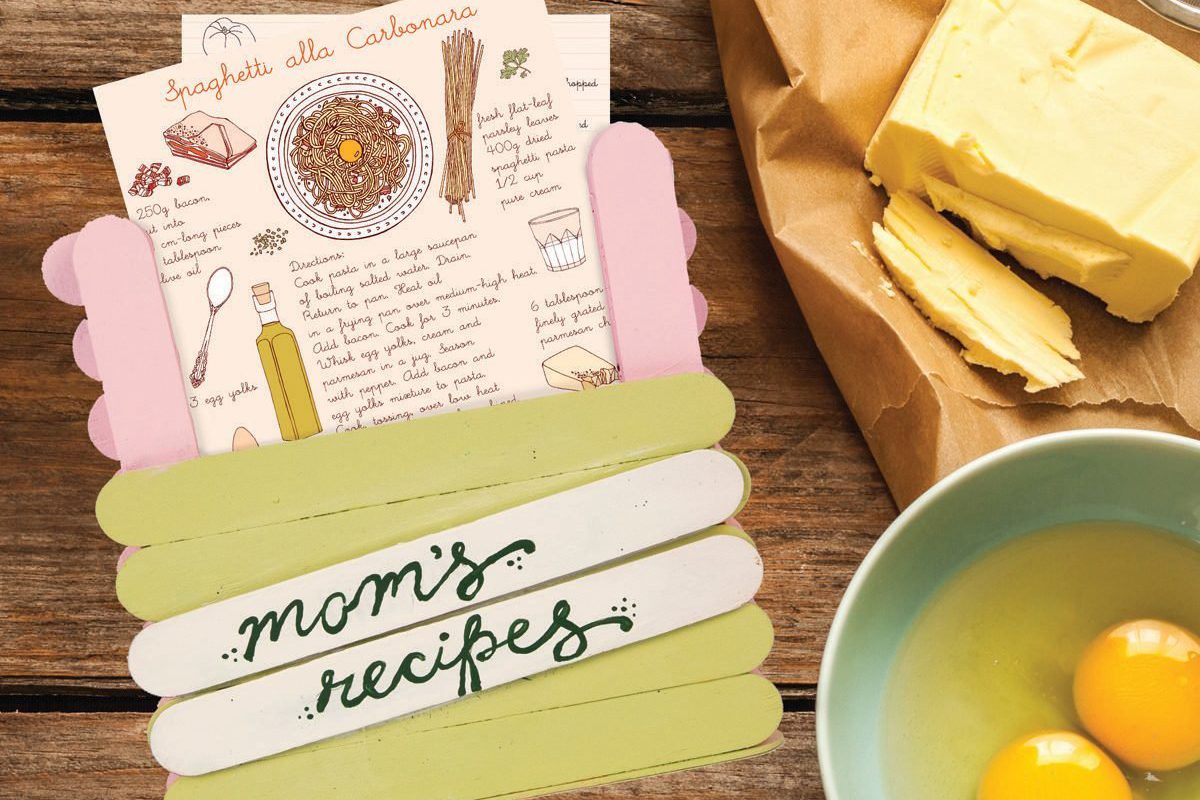 Spaghetti alla Carbonara
hopped
fresh flat-leaf
parsley leaves
400g dried
spaghetti pasta
1/2 cup
pure cream
250g bacon,
into
cm-long pieces
tablespoon
live oil
3 egg yolks
Directions:
Cook pasta in a large saucepan
of boiling salted water. Drain.
Return to pan. Heat oil
in a frying pan over medium-high heat.
Add bacon. Cook for 3 minutes.
Whisk egg yolks, cream and
parmesan in a jug. Season
with pepper. Add bacon and
egg yolks mixture to pasta.
Cook, tossing, over low heat
6 tablespoon
finely grated
parmesan ch
mom's
recipes